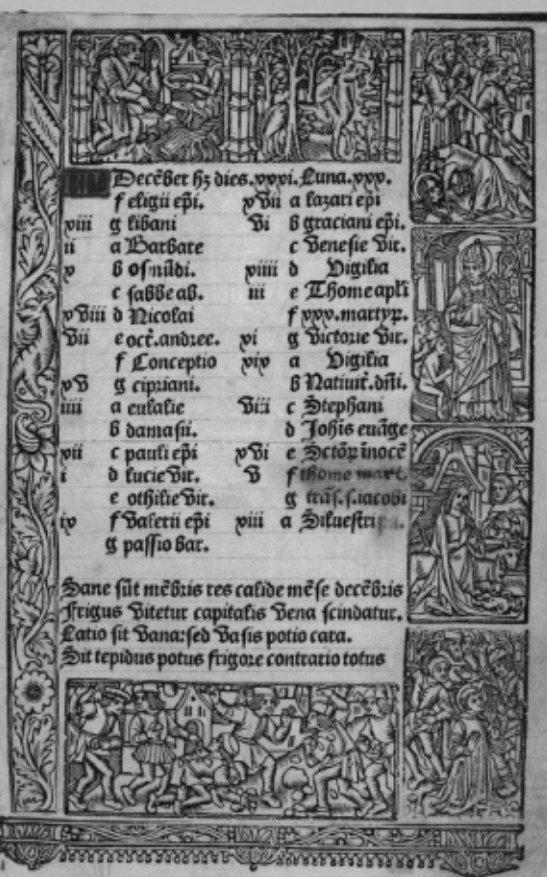 KL Decēber hꝫ dies.xxxi.Luna.xxx.
f eligii ep̄i.
xiii g libani
ii a Barbare
x b osmūdi.
c sabbe ab.
xviii d Nicolai
vii e oct̄.andree.
f Conceptio
xv g cipriani.
iiii a eulalie
b damasii.
xii c pauli ep̄i
i d lucie vir.
e othilie vir.
ix f valerii ep̄i
g passio bar.
xvii a lazari ep̄i
vi b graciani ep̄i.
c venesie vir.
xiiii d Vigilia
iii e Thome apl̄i
f xxx.martyꝝ.
xi g victorie vir.
xix a Vigilia
b Natiuit̄.dn̄i.
viii c Stephani
d Joh̄is euāge
xvi e Sctōꝝ īnocē
v f thome mart.
g trās.s.iacobi
xiii a Siluestri
Sane sūt mēbris res calide mēse decēbris
Frigus vitetur capitalis vena scindatur.
Latio sit vana:sed vasis potio cara.
Sit tepidus potus frigore contrario totus